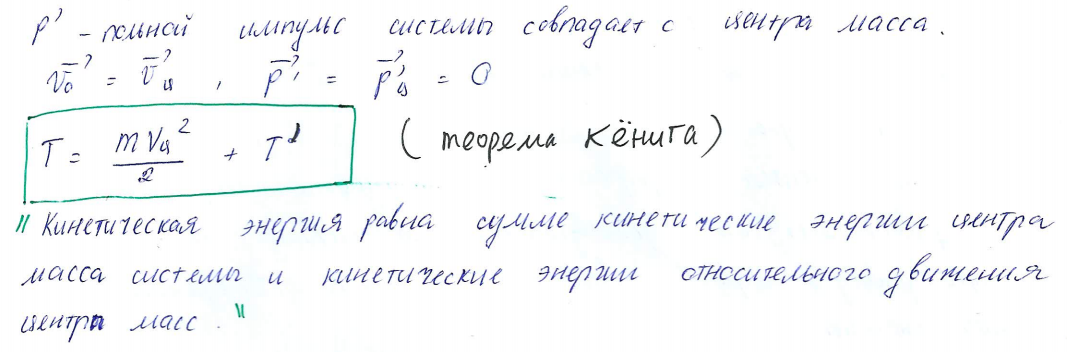 p' - полной импульс системы совпадает с центра масса.
v̄₀' = v̄'ц , p̄' = p̄'ц = 0
T = mVц²/2 + T' (теорема Кёнига)
"Кинетическая энергия равна сумме кинетические энергии центра
масса системы и кинетические энергии относительного движения
центра масс."